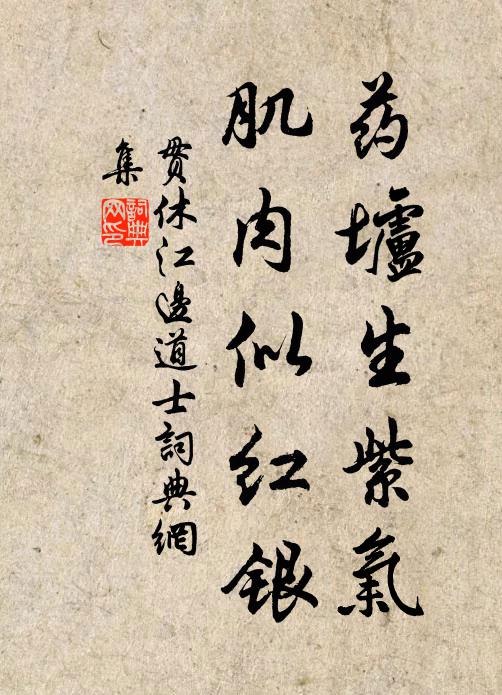 药壚生紫氣
肌肉似红銀
贯休江邊道士詞典網
集
詞典网印